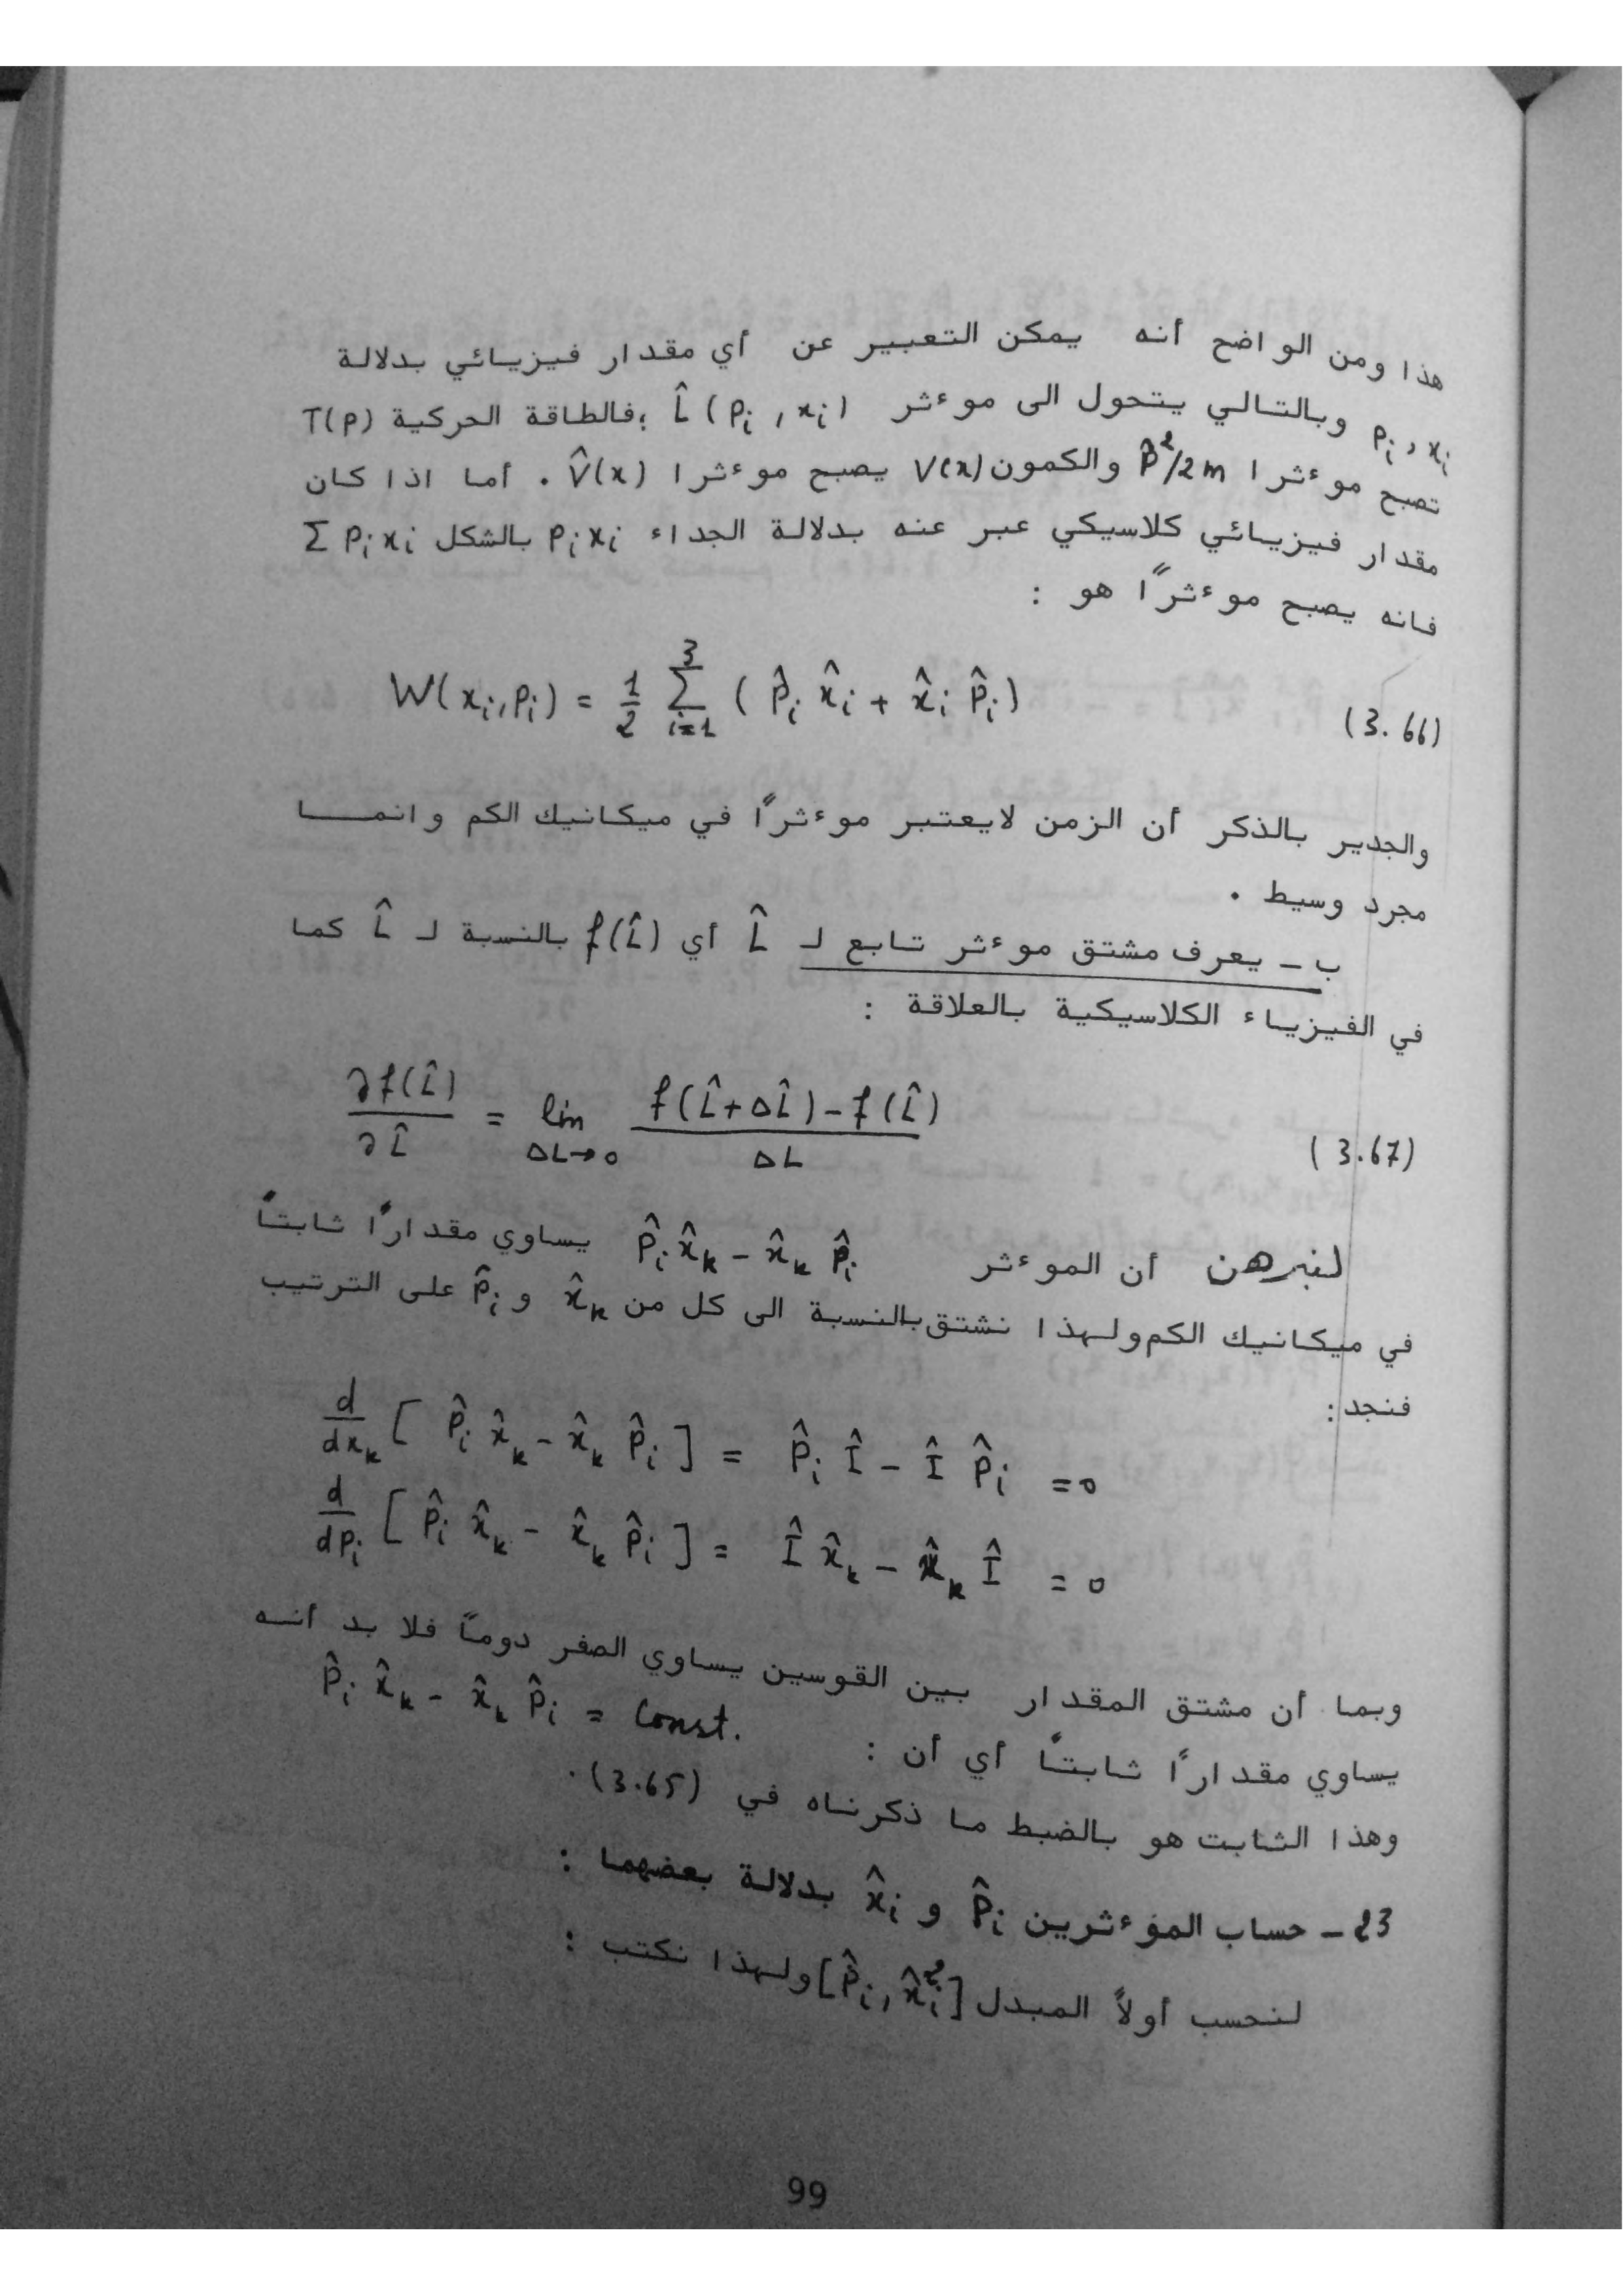 هذا ومن الواضح أنه يمكن التعبير عن أي مقدار فيزيائي بدلالة
pᵢ , xᵢ وبالتالي يتحول الى موءثر L̂ ( pᵢ , xᵢ ) ؛فالطاقة الحركية T(p)
تصبح موءثرا p̂²/2m والكمون V(x) يصبح موءثرا V̂(x) . أما اذا كان
مقدار فيزيائي كلاسيكي عبر عنه بدلالة الجداء pᵢxᵢ بالشكل Σ pᵢxᵢ
فانه يصبح موءثرًا هو :
W(xᵢ,pᵢ) = 1/2 Σ_{i=1}^{3} ( p̂ᵢ x̂ᵢ + x̂ᵢ p̂ᵢ ) (3.66)
والجدير بالذكر أن الزمن لايعتبر موءثرًا في ميكانيك الكم وانمــا
مجرد وسيط .
ب ـ يعرف مشتق موءثر تابع لـ L̂ أي f(L̂) بالنسبة لـ L̂ كما
في الفيزياء الكلاسيكية بالعلاقة :
∂f(L̂)/∂L̂ = lim_{ΔL→0} (f(L̂+ΔL̂) − f(L̂))/ΔL (3.67)
لنبرهن أن الموءثر p̂ᵢ x̂ₖ − x̂ₖ p̂ᵢ يساوي مقدارًا ثابتًا
في ميكانيك الكم ولهذا نشتق بالنسبة الى كل من x̂ₖ و p̂ᵢ على الترتيب
فنجد :
d/dxₖ [ p̂ᵢ x̂ₖ − x̂ₖ p̂ᵢ ] = p̂ᵢ Î − Î p̂ᵢ = 0
d/dpᵢ [ p̂ᵢ x̂ₖ − x̂ₖ p̂ᵢ ] = Î x̂ₖ − x̂ₖ Î = 0
وبما أن مشتق المقدار بين القوسين يساوي الصفر دومًا فلا بد أنه
يساوي مقدارًا ثابتًا أي أن : p̂ᵢ x̂ₖ − x̂ₖ p̂ᵢ = Const.
وهذا الثابت هو بالضبط ما ذكرناه في (3.65) .
23 ـ حساب الموءثرين p̂ᵢ و x̂ᵢ بدلالة بعضهما :
لنحسب أولاً المبدل [p̂ᵢ, x̂ᵢ²] ولهذا نكتب :
99